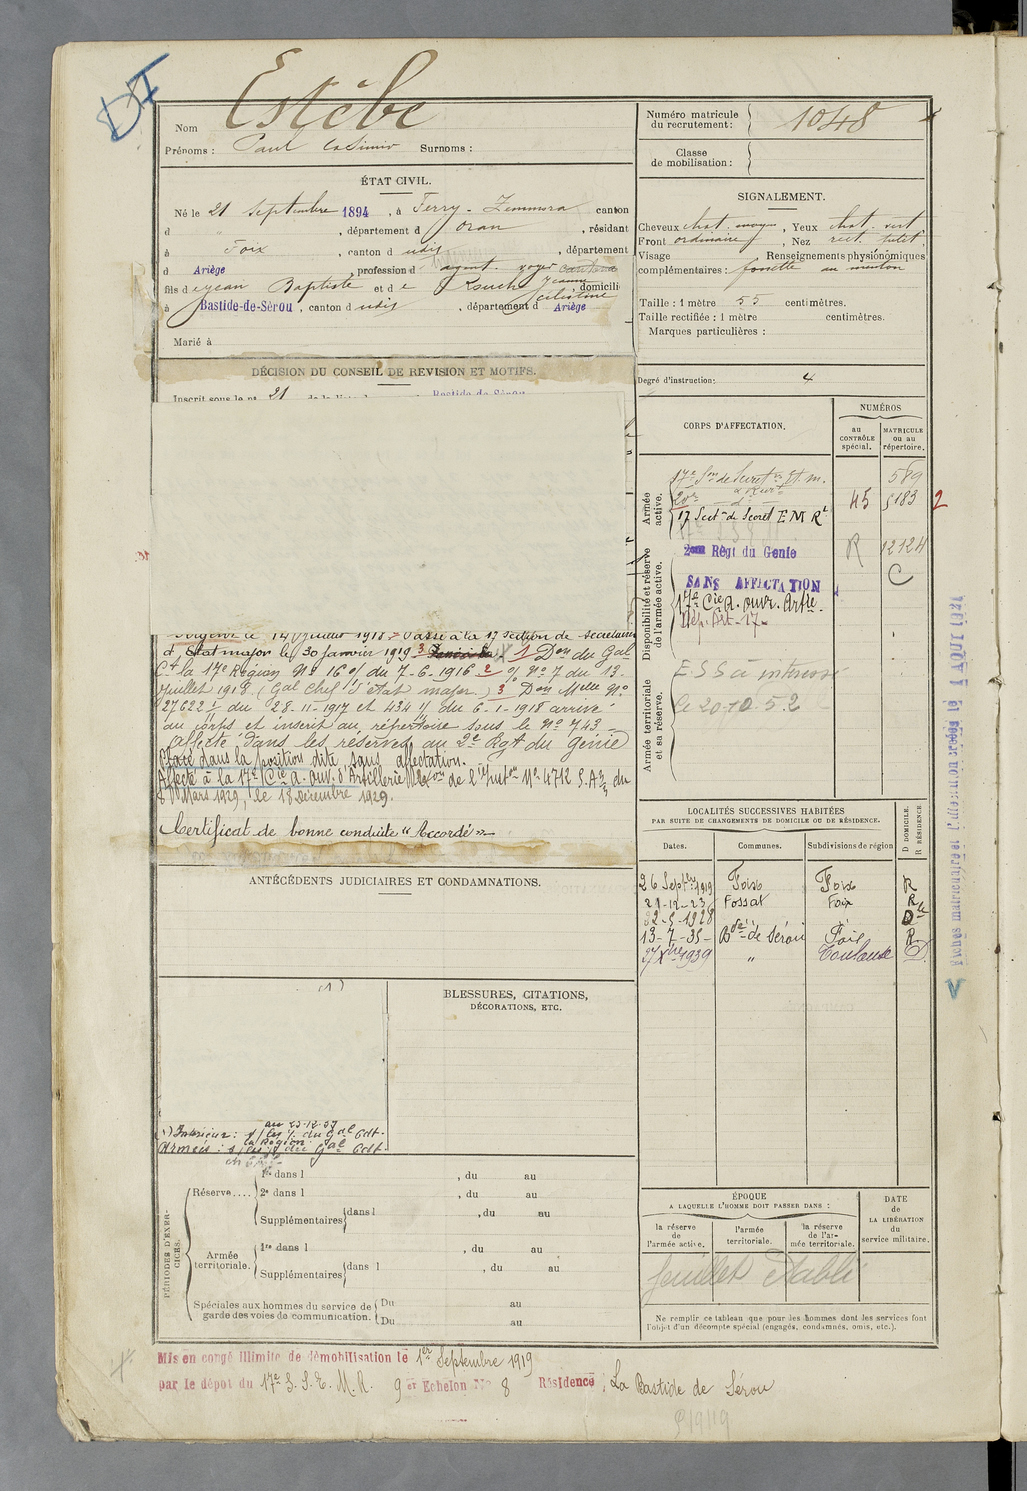 DI
Nom Estèbe
Prénoms : Paul Casimir Surnoms :
Numéro matricule
du recrutement : 1048
Classe
de mobilisation :
ÉTAT CIVIL.
Né le 21 Septembre 1894, à Ferry-Zemmora canton
d , département d Oran, résidant
à Foix, canton d udit, département
d Ariège, profession d agent voyer cantonal
fils de Jean Baptiste et de Jeanne
Célestine, domicilié
à Bastide-de-Sérou, canton d udit, département d Ariège
Marié à
SIGNALEMENT.
Cheveux chat. moyen, Yeux chat. vert
Front ordinaire, Nez rect.
Visage Renseignements physionomiques
complémentaires : fossette au menton
Taille : 1 mètre 55 centimètres.
Taille rectifiée : 1 mètre centimètres.
Marques particulières :
Degré d'instruction: 4
DÉCISION DU CONSEIL DE REVISION ET MOTIFS.
Inscrit sous le n° 21 de la liste d Bastide de Sérou
le 14 Juillet 1918. Passé à la 17 section de secrétaires
d'Etat major le 30 janvier 1919 3 1 Don du Gal
Ct la 17e Région No 16 % du 7-6-1916 2 % No 7 du 13
Juillet 1918 (Gal Chef d'état major) 3 Don Melle No
27622 % du 28-11-1917 et 434 % du 6-1-1918 arrivé
au corps et inscrit au répertoire sous le No 743
Affecté dans les réserves au 2e Rgt du Génie
Placé dans la position dite sans affectation.
Affecté à la 17e Cie a. ouv. d'Artillerie de l' No 4712 du
8 Mars 1929, le 18 Décembre 1929.
Certificat de bonne conduite "Accordé"
CORPS D'AFFECTATION.
NUMÉROS
au
CONTRÔLE
spécial.
MATRICULE
ou au
répertoire.
Armée
active.
17e Son de Secret. Et. m. 589
20e d° 45 5183 2
17 Sect. de Secret E M Rt
Disponibilité et réserve
de l'armée active.
2eme Régt du Génie R 12124
SANS AFFECTATION C
17e Cie a. ouv. Artie.
Dép. Art. 17
Armée territoriale
et sa réserve.
E.S.S à
le 20-10-52
Rayés matriculairement, nouvelles le 1 AOUT 1921
LOCALITÉS SUCCESSIVES HABITÉES
PAR SUITE DE CHANGEMENTS DE DOMICILE OU DE RÉSIDENCE.
D DOMICILE.
R RÉSIDENCE
Dates. Communes. Subdivisions de région
26 Septbre 1919 Foix Foix R
21-12-23 Fossat Foix R
22-5-1928 Dle
13-7-35 Bde de Sérou Foix R
27 Xbre 1939 " Toulouse D
ANTÉCÉDENTS JUDICIAIRES ET CONDAMNATIONS.
BLESSURES, CITATIONS,
DÉCORATIONS, ETC.
Intérieur : du Gal Cdt.
la Région
Armées : du Gal Cdt.
PÉRIODES D'EXERCICES.
Réserve....
1re dans l , du au
2e dans l , du au
Supplémentaires dans l , du au
Armée
territoriale.
1re dans l , du au
Supplémentaires dans l , du au
Spéciales aux hommes du service de
garde des voies de communication.
Du au
Du au
ÉPOQUE
A LAQUELLE L'HOMME DOIT PASSER DANS :
la réserve
de
l'armée active.
l'armée
territoriale.
la réserve
de l'ar-
mée territoriale.
DATE
de
LA LIBÉRATION
du
service militaire.
feuillet établi
Ne remplir ce tableau que pour les hommes dont les services font
l'objet d'un décompte spécial (engagés, condamnés, omis, etc.).
Mis en congé illimité de démobilisation le 1er Septembre 1919
par le dépôt du 17e S. S. E. M. R. 9 er Echelon No 8 Résidence : La Bastide de Sérou